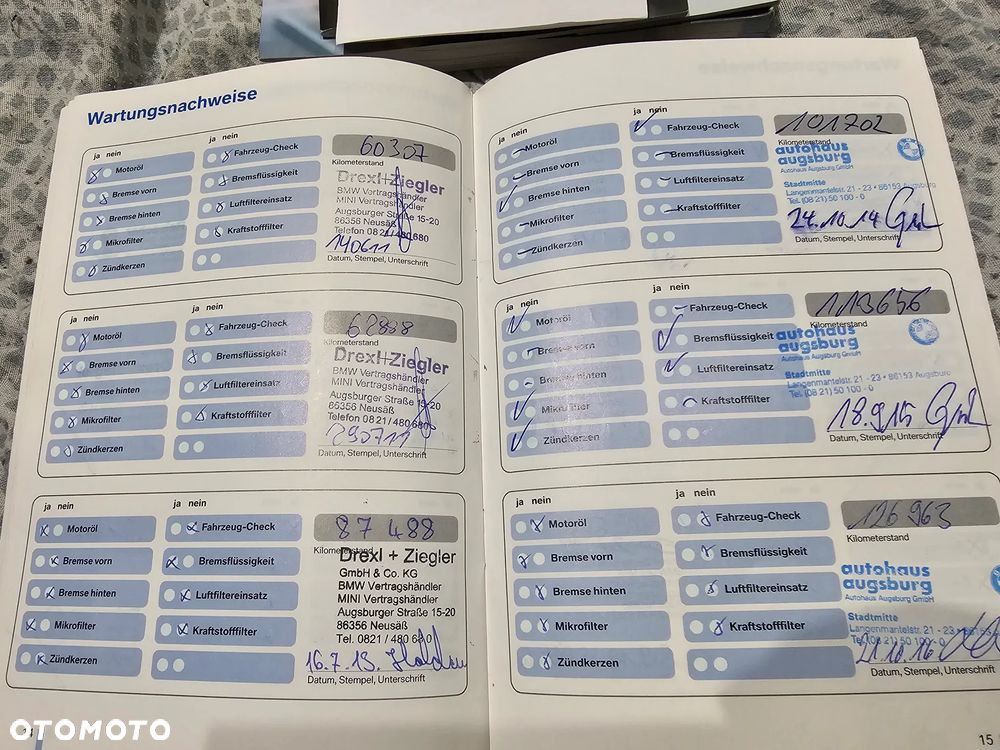 Wartungsnachweise
ja nein
Motoröl
Bremse vorn
Bremse hinten
Mikrofilter
Zündkerzen
ja nein
Fahrzeug-Check
Bremsflüssigkeit
Luftfiltereinsatz
Kraftstofffilter
60307
Kilometerstand
Drexl+Ziegler
BMW Vertragshändler
MINI Vertragshändler
Augsburger Straße 15-20
86356 Neusäß
Telefon 0821/480680
140611
Datum, Stempel, Unterschrift
ja nein
Motoröl
Bremse vorn
Bremse hinten
Mikrofilter
Zündkerzen
ja nein
Fahrzeug-Check
Bremsflüssigkeit
Luftfiltereinsatz
Kraftstofffilter
Kilometerstand
Drexl+Ziegler
BMW Vertragshändler
MINI Vertragshändler
Augsburger Straße 15-20
86356 Neusäß
Telefon 0821/480680
290711
Datum, Stempel, Unterschrift
ja nein
Motoröl
Bremse vorn
Bremse hinten
Mikrofilter
Zündkerzen
ja nein
Fahrzeug-Check
Bremsflüssigkeit
Luftfiltereinsatz
Kraftstofffilter
87 488
Kilometerstand
Drexl + Ziegler
GmbH & Co. KG
BMW Vertragshändler
MINI Vertragshändler
Augsburger Straße 15-20
86356 Neusäß
Tel. 0821 / 480 68 0
16.7.13.
Datum, Stempel, Unterschrift
ja nein
Motoröl
Bremse vorn
Bremse hinten
Mikrofilter
Zündkerzen
ja nein
Fahrzeug-Check
Bremsflüssigkeit
Luftfiltereinsatz
Kraftstofffilter
101702
Kilometerstand
autohaus
augsburg
Autohaus Augsburg GmbH
Stadtmitte
Langenmantelstr. 21 - 23 • 86153 Augsburg
Tel. (08 21) 50 100 - 0
24.10.14
Datum, Stempel, Unterschrift
ja nein
Motoröl
Bremse vorn
Bremse hinten
Mikrofilter
Zündkerzen
ja nein
Fahrzeug-Check
Bremsflüssigkeit
Luftfiltereinsatz
Kraftstofffilter
113656
Kilometerstand
autohaus
augsburg
Autohaus Augsburg GmbH
Stadtmitte
Langenmantelstr. 21 - 23 • 86153 Augsburg
Tel. (08 21) 50 100 - 0
18.9.15
Datum, Stempel, Unterschrift
ja nein
Motoröl
Bremse vorn
Bremse hinten
Mikrofilter
Zündkerzen
ja nein
Fahrzeug-Check
Bremsflüssigkeit
Luftfiltereinsatz
Kraftstofffilter
126 963
Kilometerstand
autohaus
augsburg
Autohaus Augsburg GmbH
Stadtmitte
Langenmantelstr. 21 - 23 • 86153
21.10.16
Datum, Stempel, Unterschrift
15
OTOMOTO